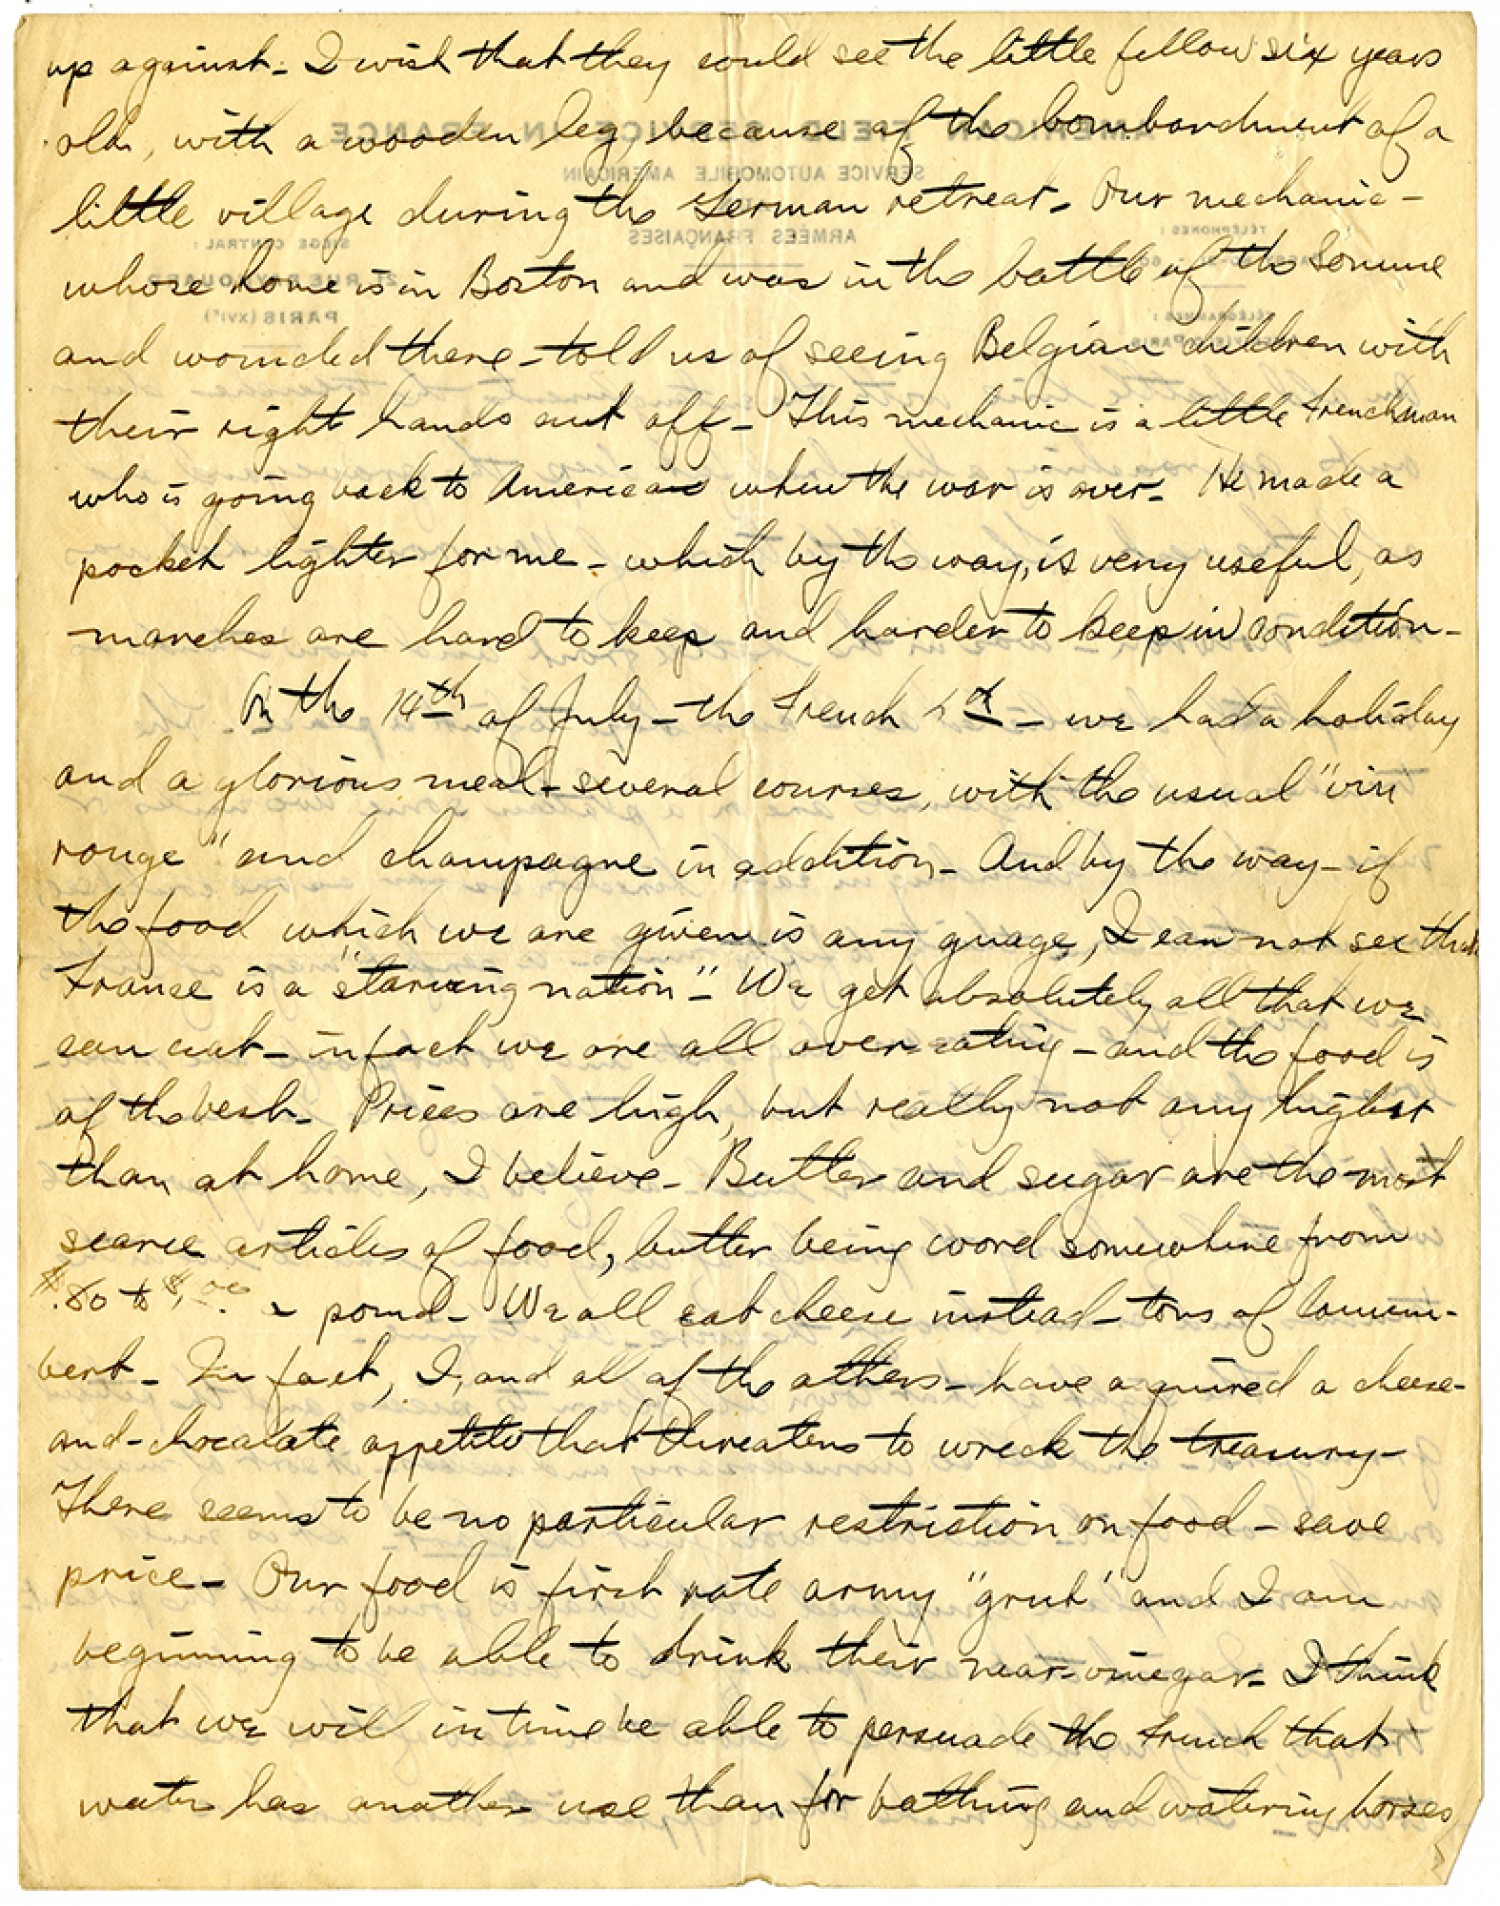 up against - I wish that they could see the little fellow six years
old, with a wooden leg, because of the bombardment of a
little village during the German retreat - Our mechanic -
whose home is in Boston and was in the battle of the Somme
and wounded there - told us of seeing Belgian children with
their right hands cut off - This mechanic is a little Frenchman
who is going back to America when the war is over - He made a
pocket lighter for me - which by the way, is very useful, as
matches are hard to keep and harder to keep in condition -
On the 14th of July - the French - we had a holiday
and a glorious meal - several courses, with the usual "vin
rouge" and champagne in addition - And by the way - if
the food which we are given is any guage, I can not see that
France is a "starving nation" - We get absolutely all that we
can eat - in fact we are all over-eating - and the food is
of the best - Prices are high, but really not any higher
than at home, I believe - Butter and sugar are the most
scarce articles of food, butter being word somewhere from
$.80 to $1.00 a pound - We all eat cheese instead - tons of Camem-
bert - In fact, I, and all of the others - have acquired a cheese-
and-chocalate appetite that threatens to wreck the treasury -
There seems to be no particular restriction on food - save
price - Our food is first rate army "grub" and I am
beginning to be able to drink their near-vinegar - I think
that we will in time be able to persuade the French that
water has another use than for bathing and watering horses
AMERICAN FIELD SERVICE IN FRANCE
SERVICE AUTOMOBILE AMERICAIN
ARMÉES FRANÇAISES
SIEGE CENTRAL :
PARIS (XVIe)
TÉLÉPHONES :
TÉLÉGRAMMES :